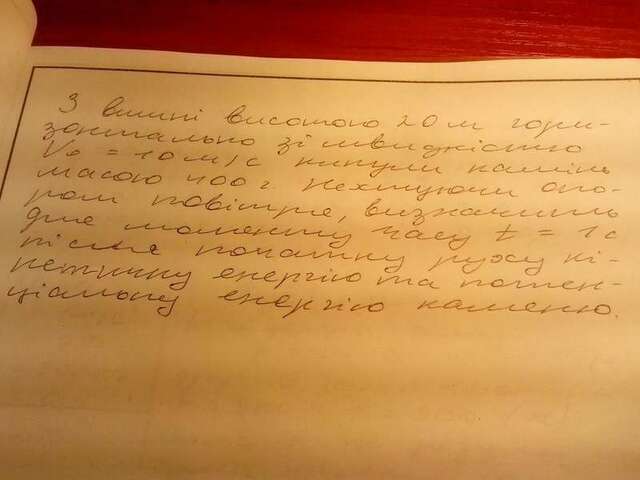 З вишкі висотою 20 м гори-
зонтально зі швидкістю
V₀ = 10 м/с кинули камінь
масою 400 г. Нехтуючи опо-
ром повітря, визначить
для моменту часу t = 1 с
після початку руху кі-
нетичну енергію та потен-
ціальну енергію каменю.